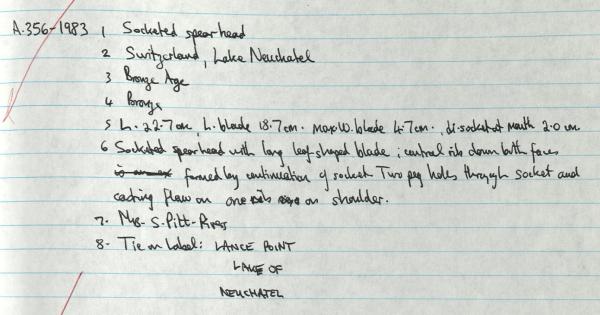 A.356-1983 1 Socketed spearhead
2 Switzerland, Lake Neuchatel
3 Bronze Age
4 Bronze
5 L. 22.7cm, L. blade 18.7cm. max W. blade 4.7cm., di. socket at mouth 2.0 cm
6 Socketed spearhead with long leaf-shaped blade; central rib down both faces
formed by continuation of socket. Two peg holes through socket and
casting flaw on one on shoulder.
7. Mrs. S. Pitt-Rivers
8- Tie on Label: LANCE POINT
LAKE OF
NEUCHATEL